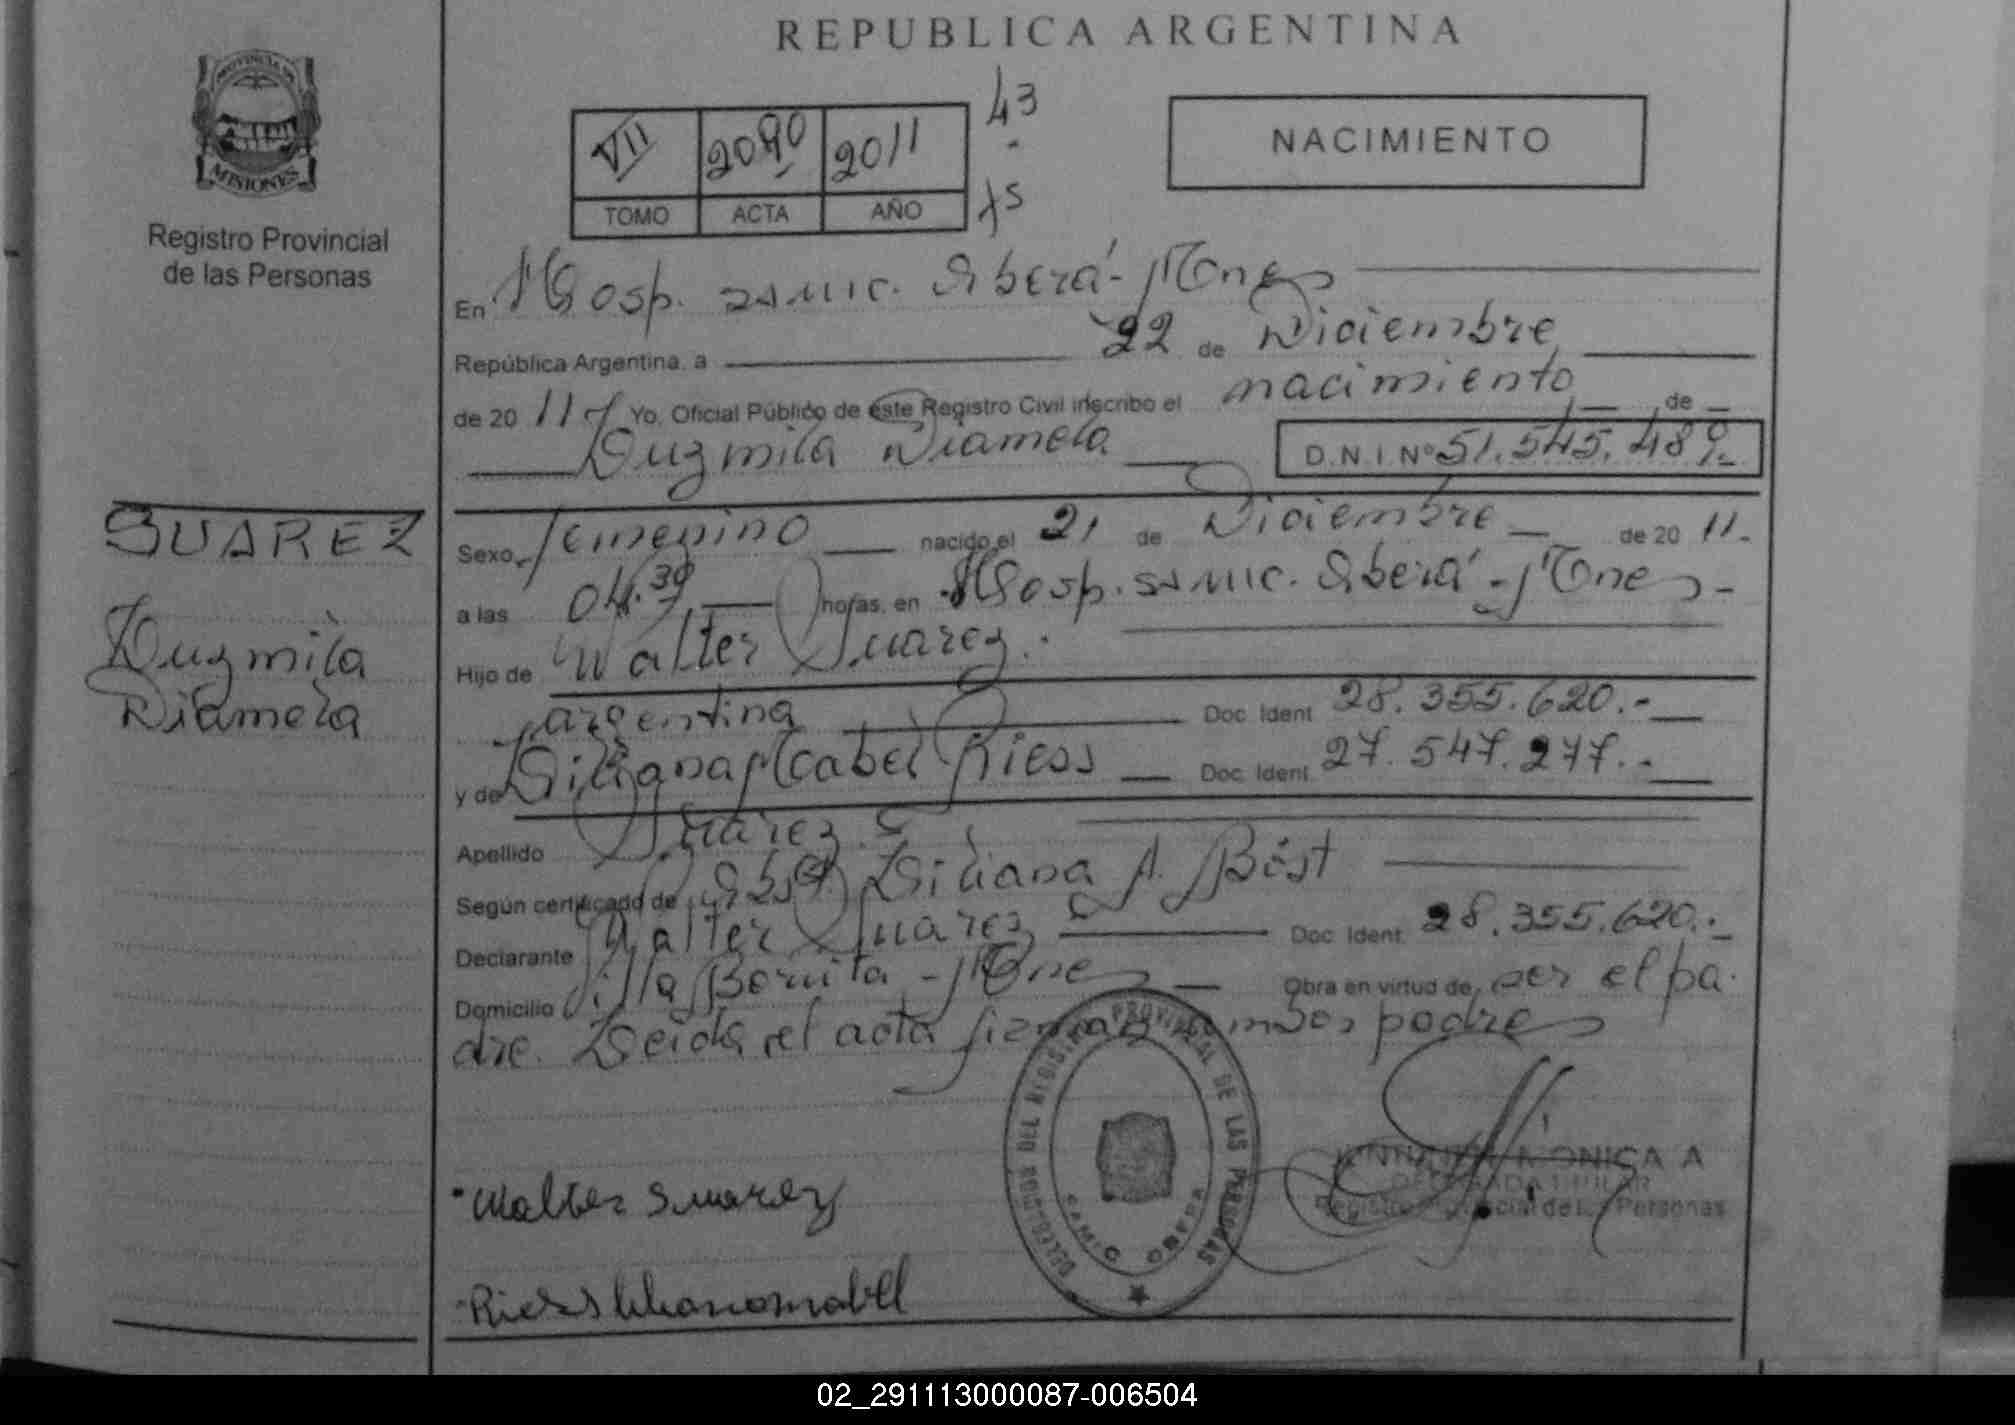 REPUBLICA ARGENTINA
PROVINCIA DE
MISIONES
Registro Provincial
de las Personas
VII 2011
TOMO ACTA AÑO
43
NACIMIENTO
En Hosp. samic. Oberá - Mnes
República Argentina, a 22 de Diciembre
de 2011 Yo, Oficial Público de este Registro Civil inscribo el nacimiento de
Luzmila Diamela D.N.I. Nº 51.545.489.-
SUAREZ
Luzmila
Diamela
Sexo femenino nacido el 21 de Diciembre de 2011.-
a las 04.30 horas, en Hosp. samic. Oberá - Mnes -
Hijo de Walter Suarez.
argentina Doc. Ident. 28.355.620.-
y de Liliana Mabel Riess Doc. Ident. 27.547.277.-
Apellido Suarez
Según certificado de Obst. Liliana A. Bóst
Declarante Walter Suarez Doc. Ident. 28.355.620.-
Domicilio Villa Bonita - Mnes Obra en virtud de ser el pa-
dre. Leida el acta firman ambos padres
DELEGACION DEL REGISTRO PROVINCIAL DE LAS PERSONAS
MONICA A
DELEGADA TITULAR
Registro Provincial de las Personas
Walter Suarez
Riess lilianamabel
02_291113000087-006504